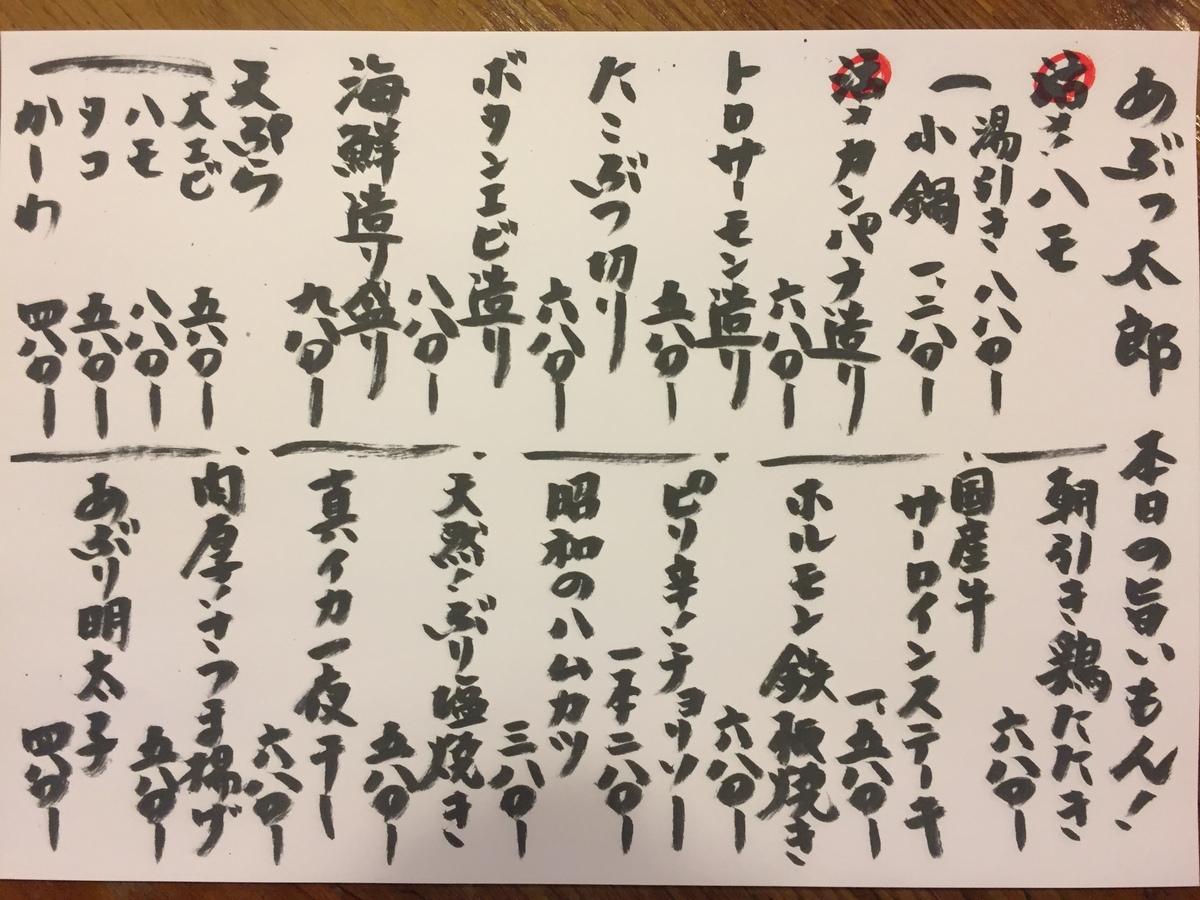 あぶっ太郎 本日の旨いもん!
活〆ハモ
湯引き 八八〇ー
小鍋 一、二八〇ー
活〆カンパチ造り
六八〇ー
トロサーモン造り
五八〇ー
たこぶつ切り
六八〇ー
ボタンエビ造り
八八〇ー
海鮮造り盛り
九八〇ー
天ぷら
大エビ 五八〇ー
ハモ 八八〇ー
タコ 五八〇ー
かしわ 四八〇ー
朝引き鶏たたき
六八〇ー
国産牛
サーロインステーキ
一、五八〇ー
ホルモン鉄板焼き
六八〇ー
ピリ辛!チョリソー
一本二八〇ー
昭和のハムカツ
三八〇ー
天然!ぶり塩焼き
五八〇ー
真イカ一夜干し
六八〇ー
肉厚!さつま揚げ
五八〇ー
あぶり明太子
四八〇ー